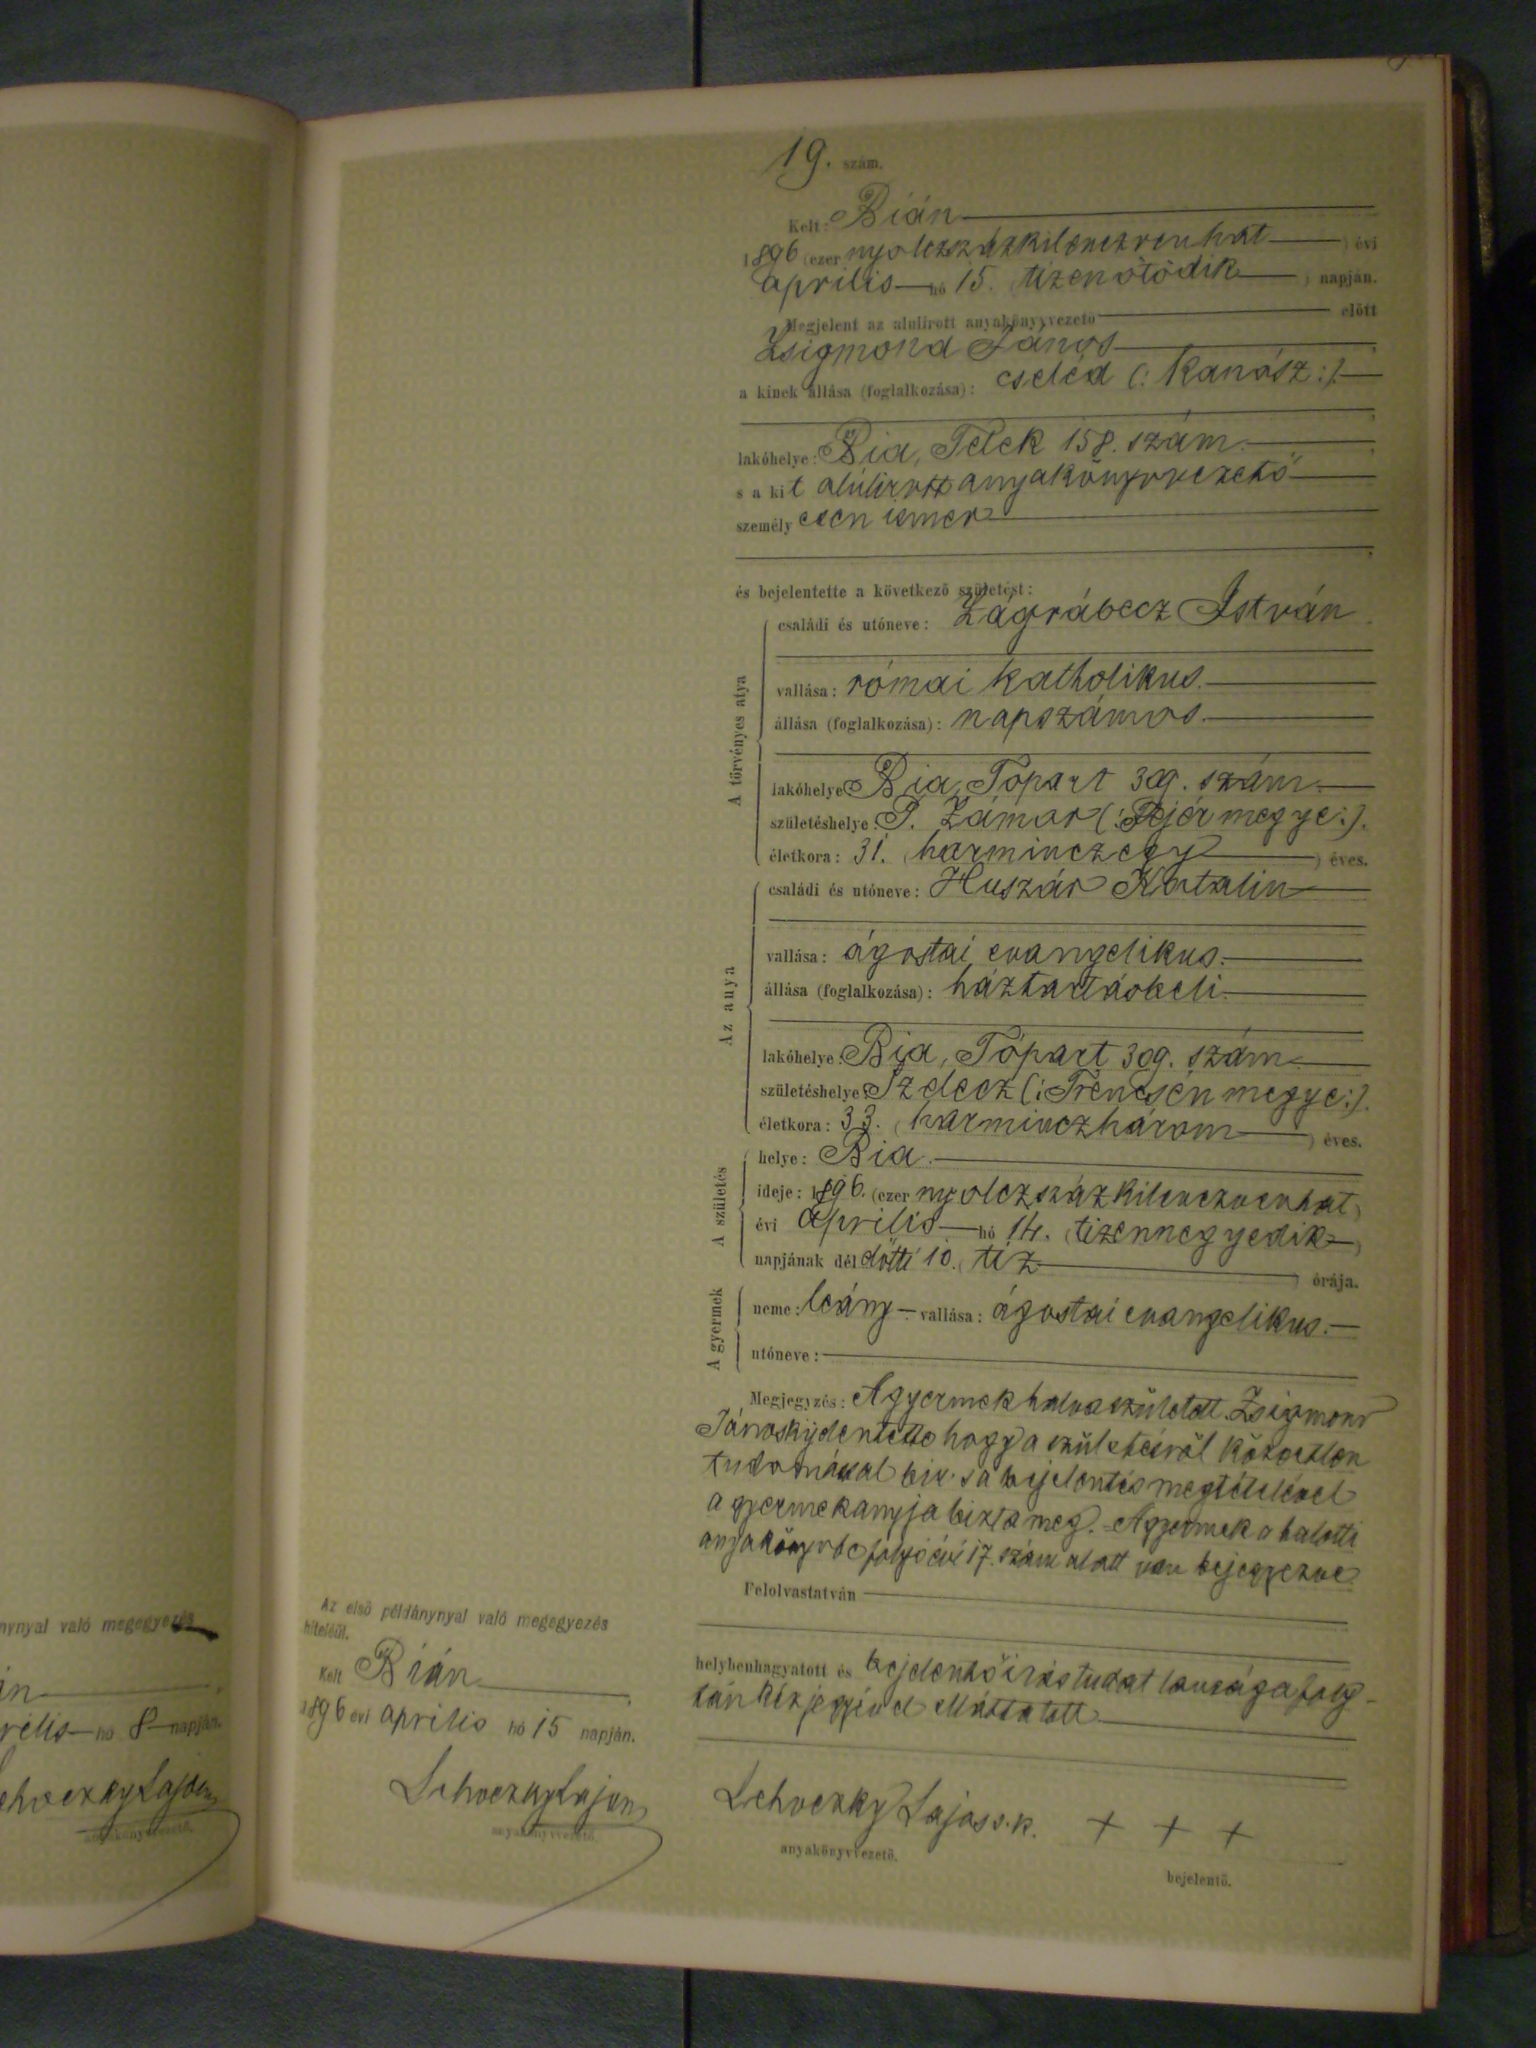 19. szám.
Kelt: Bián
1896 (ezer nyolczszázkilenczvenhat) évi
április hó 15. (tizenötödik) napján.
Megjelent az alulirott anyakönyvvezető előtt
Zsigmond János
a kinek állása (foglalkozása): cseléd (: Kanász :)
lakóhelye: Bia, Telek 158. szám.
s a kit alúlirott anyakönyvvezető
személyesen ismer
és bejelentette a következő születést:
A törvényes atya
családi és utóneve: Zágrábecz István
vallása: római katholikus.
állása (foglalkozása): napszámos.
lakóhelye: Bia, Tópart 309. szám.
születéshelye: P. Zámor (: Fejér megye :).
életkora: 31. (harminczegy) éves.
Az anya
családi és utóneve: Huszár Katalin
vallása: ágostai evangelikus.
állása (foglalkozása): háztartásbeli.
lakóhelye: Bia, Tópart 309. szám
születéshelye: (: Trencsén megye :).
életkora: 33. (harminczhárom) éves.
A születés
helye: Bia.
ideje: 1896. (ezer nyolczszázkilenczvenhat)
évi április hó 14. (tizennegyedik)
napjának délelőtti 10. (tiz) órája.
A gyermek
neme: leány. vallása: ágostai evangelikus.
utóneve:
Megjegyzés: A gyermek halva született. Zsigmond
János kijelentette hogy a születésről közvetlen
tudomással bir s a bejelentés megtételével
a gyermek anyja bizta meg. A gyermek a halotti
anyakönyvbe folyó évi 17. szám alatt van bejegyezve
Felolvastatván
helybenhagyatott és bejelentő irástudatlansága foly-
tán kézjegyével elláttatott.
Lehoczky Lajos s. k. + + +
anyakönyvvezető.
bejelentő.
Az első példánynyal való megegyezés
hiteléül.
Kelt Bián
1896 évi április hó 15 napján.
Lehoczky Lajos
anyakönyvvezető.
nynyal való megegyezés
án
rilis hó 8 napján.
ehoczky Lajos
anyakönyvvezető.